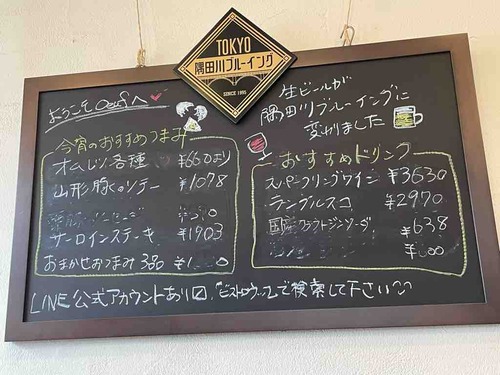 TOKYO
隅田川ブルーイング
SINCE 1995
ようこそ へ
生ビールが
隅田川ブルーイングに
変わりました
今宵のおすすめつまみ
オムレツ各種 ¥660より
山形豚のソテー ¥1078
サーロインステーキ ¥1903
おまかせおつまみ3品
おすすめドリンク
スパークリングワイン ¥3630
ランブルスコ ¥2970
国産クラフトジンソーダ ¥638
LINE公式アカウントあり
で検索して下さい